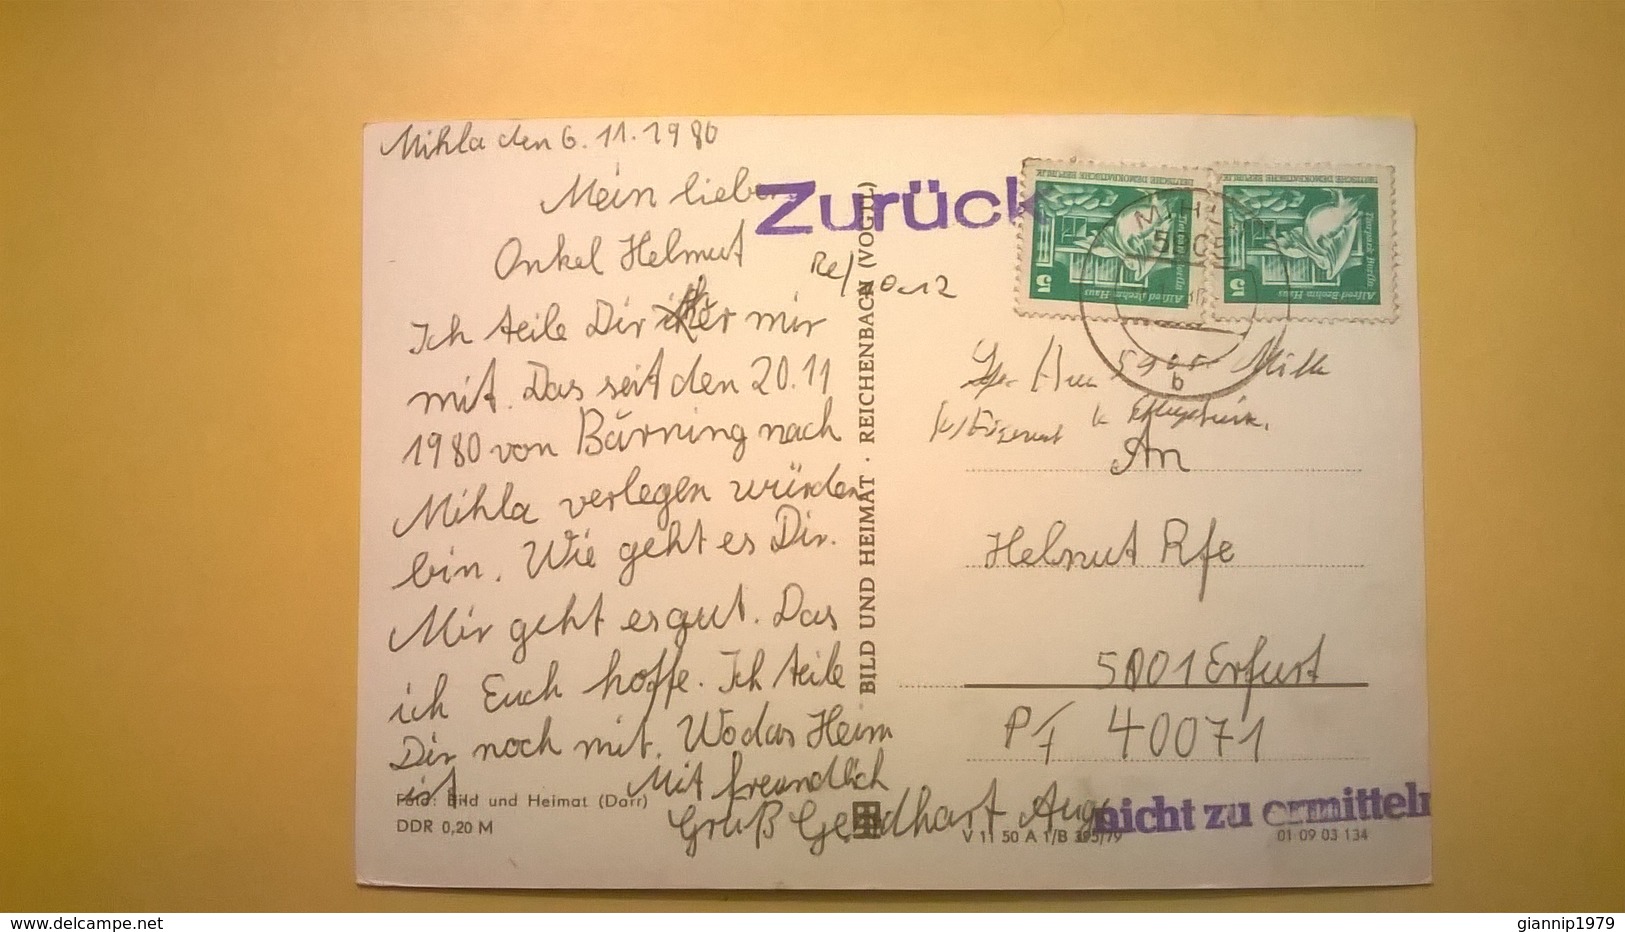 Mihla den 6.11.1980
Mein lieber
Onkel Helmut
Ich teile Dir mir
mit. Das seit den 20.11
1980 von Bärning nach
Mihla verlegen würden
bin. Wie geht es Dir.
Mir geht es gut. Das
ich Euch hoffe. Ich teile
Dir noch mit. Wo das Heim
ist
Mit freundlich
Gruß Gerdhart Aug
Foto: Bild und Heimat (Darr)
DDR 0,20 M
BILD UND HEIMAT · REICHENBACH (VOGTL)
V 11 50 A 1/B 395/79
01 09 03 134
Zurück
DEUTSCHE DEMOKRATISCHE REPUBLIK
Tierpark Berlin
Alfred-Brehm-Haus
5
DEUTSCHE DEMOKRATISCHE REPUBLIK
Tierpark Berlin
Alfred-Brehm-Haus
5
MIHLA
5905
b
5905
An
Helmut Rfe
5001 Erfurt
Pf 40071
nicht zu ermitteln
https://www.delcampe.net
giannip1979